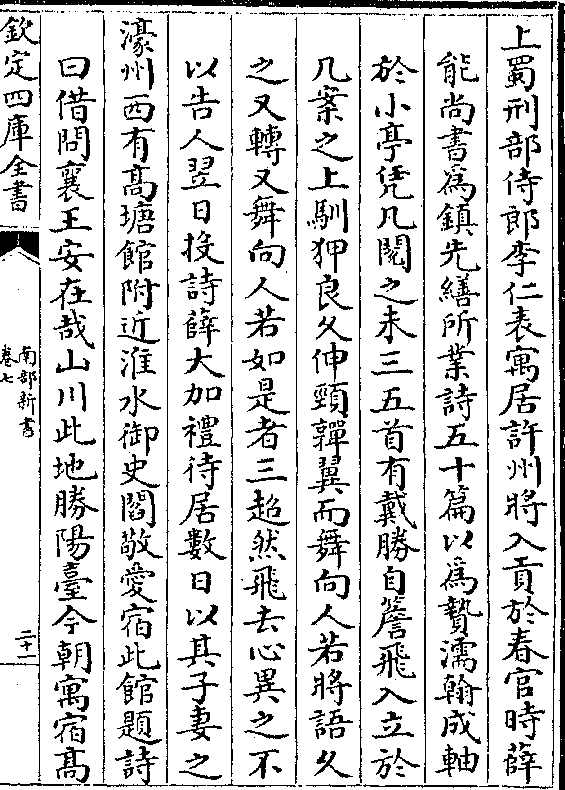 上蜀刑部侍郎李仁表寓居許州將入貢於春官時薛
能尚書為鎮先繕所業詩五十篇以為贄濡翰成軸
於小亭凭几閱之未三五首有戴勝自簷飛入立於
几案之上馴狎良久伸頸嚲翼而舞向人若將語久
之又轉又舞向人若如是者三超然飛去心異之不
以告人翌日投詩薛大加禮待居數日以其子妻之
濠州西有高塘館附近淮水御史閻敬愛宿此館題詩
曰借問襄王安在哉山川此地勝陽臺今朝寓宿高
欽定四庫全書
南部新書
卷七
二十一